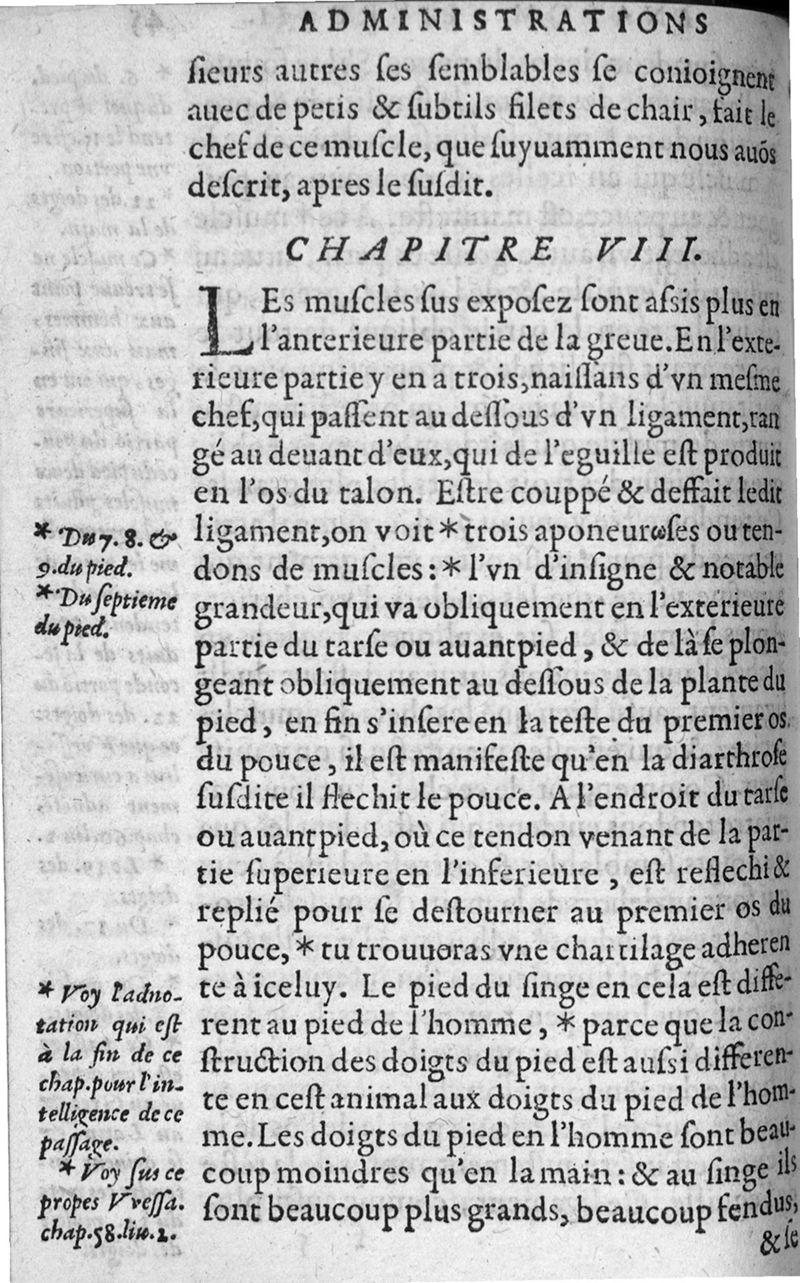 ADMINISTRATIONS
ſieurs autres ſes ſemblables ſe conioignent
auec de petis & ſubtils filets de chair, fait le
chef de ce muſcle, que ſuyuamment nous auõs
deſcrit, apres le ſuſdit.
CHAPITRE VIII.
LEs muſcles ſus expoſez ſont aſsis plus en
l'anterieure partie de la greue. En l'exte-
rieure partie y en a trois, naiſſans d'vn meſme
chef, qui paſſent au deſſous d'vn ligament, ran
gé au deuant d'eux, qui de l'eguille eſt produit
en l'os du talon. Eſtre couppé & deffait ledit
ligament, on voit * trois aponeuroſes ou ten-
dons de muſcles: * l'vn d'inſigne & notable
grandeur, qui va obliquement en l'exterieure
partie du tarſe ou auantpied, & de là ſe plon-
geant obliquement au deſſous de la plante du
pied, en fin s'inſere en la teſte du premier os
du pouce, il eſt manifeſte qu'en la diarthroſe
ſuſdite il flechit le pouce. A l'endroit du tarſe
ou auantpied, où ce tendon venant de la par-
tie ſuperieure en l'inferieure, eſt reflechi &
replié pour ſe deſtourner au premier os du
pouce, * tu trouueras vne chartilage adheren
te à iceluy. Le pied du ſinge en cela eſt diffe-
rent au pied de l'homme, * parce que la con-
ſtruction des doigts du pied eſt auſsi differen-
te en ceſt animal aux doigts du pied de l'hom-
me. Les doigts du pied en l'homme ſont beau-
coup moindres qu'en la main: & au ſinge ils
ſont beaucoup plus grands, beaucoup fendus,
& ſe
* Du 7. 8. &
9. du pied.
* Du ſeptieme
du pied.
* Voy l'adno-
tation qui eſt
à la fin de ce
chap. pour l'in-
telligence de ce
paſſage.
* Voy ſus ce
propes Vveſſa.
chap. 58. liu. 2.